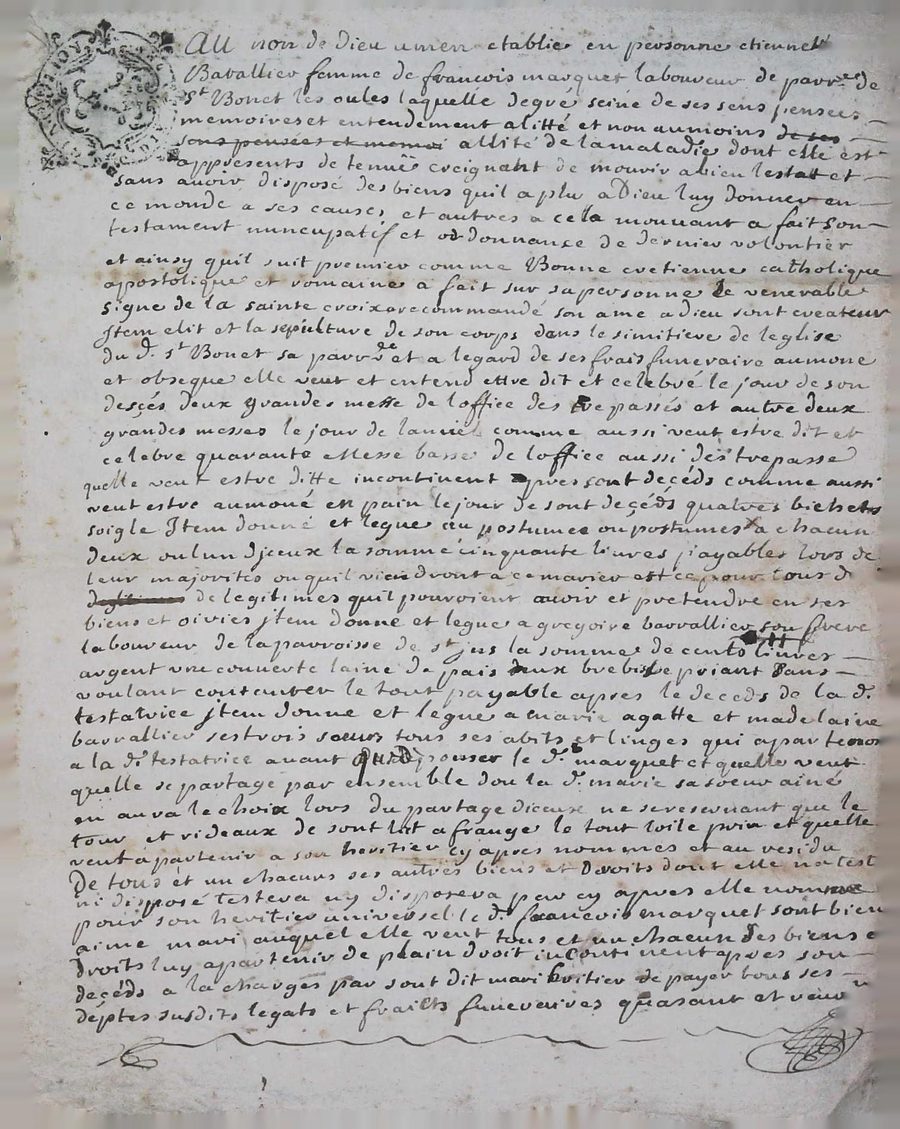 Au non de Dieu amen etablie en personne etiennet
Baralliee femme de francois marquet laboureur de parr.e de
S.t Bonet les oules laquelle degré seine de ses sens pensees
memoires et entendement alitté et non aumoins de ses
sens pensées et memoi allité de la maladie dont elle est
appresents detenuë creignant de mourir abien lestat et
sans avoir disposé des biens quil a plu a Dieu luy donner en
ce monde a ses causes et autres a cela mouvant a fait son
testament nuncupatif et ordonnance de dernier volontier
et ainsy quil suit premier comme Bonne cretienne catholique
apostolique et romaine a fait sur sa personne le venerable
signe de la sainte croix a recommandé son ame a dieu sont createur
Jtem elit et la sepulture de son corps dans le simitiere de leglise
du d. s.t Bonet sa parr.e et a legard de ses frais funeraire aumone
et obseque elle veut et entend ettre dit et celebré le jour de son
desçés deux grandes messe de loffice des trepassés et autre deux
grandes messes le jour de lanuel comme aussi veut estre dit et
celebre quarante Messe basse de loffice aussi des trepasse
quelle veut estre ditte incontinent apres sont deçéds comme aussi
veut estre aumoné en pain le jour de sont deçéds quatres bichets
soigle Jtem donné et legue au postumee ou postumes a chacun
deux ou lun djceux la somme cinquante livres payables lors de
leur majorités ou quil viendront a ce marier et ce pour tous d
de legitimes quil pourroient avoir et pretendre en ses
biens et oivies jtem donne et legue a gregoire barrallier son frere
laboureur de la parroisse de s.t jus la somme de cents livres
argent une couverte laine de pais deux brebis le priant sans
voulant contenter le tout payable apres le deceds de la d.
testatrice jtem donne et legue a marie agatte et madelaine
barrallier ses trois sœurs tous ses abits et linges qui apartenoi
a la d.e testatrice avant quepouser le d. marquet et quelle veut
quelle se partage par ensemble dou la d. marie sa soeur ainé
en aura le choix lors du partage diceux ne se reservant que le
tour et rideaux de sont lit a frange le tout toile prin et quelle
veut apartenir a son heritier cy apres nommes et au residu
De tous et un chacuns ses autres biens et Droits dont elle na test
ni disposé testera ny disposera par cy apres elle nomme
pour son heritier universel le d. francois marquet sont bien
aime mari auquel elle veut tous et un chacun des biens e
Droits luy apartenir de plain droit incontinent apres son
deçéds a la charges par sont dit mari heritier de payer tous ses
deptes susdits legats et fraits funeraires quasant et veux